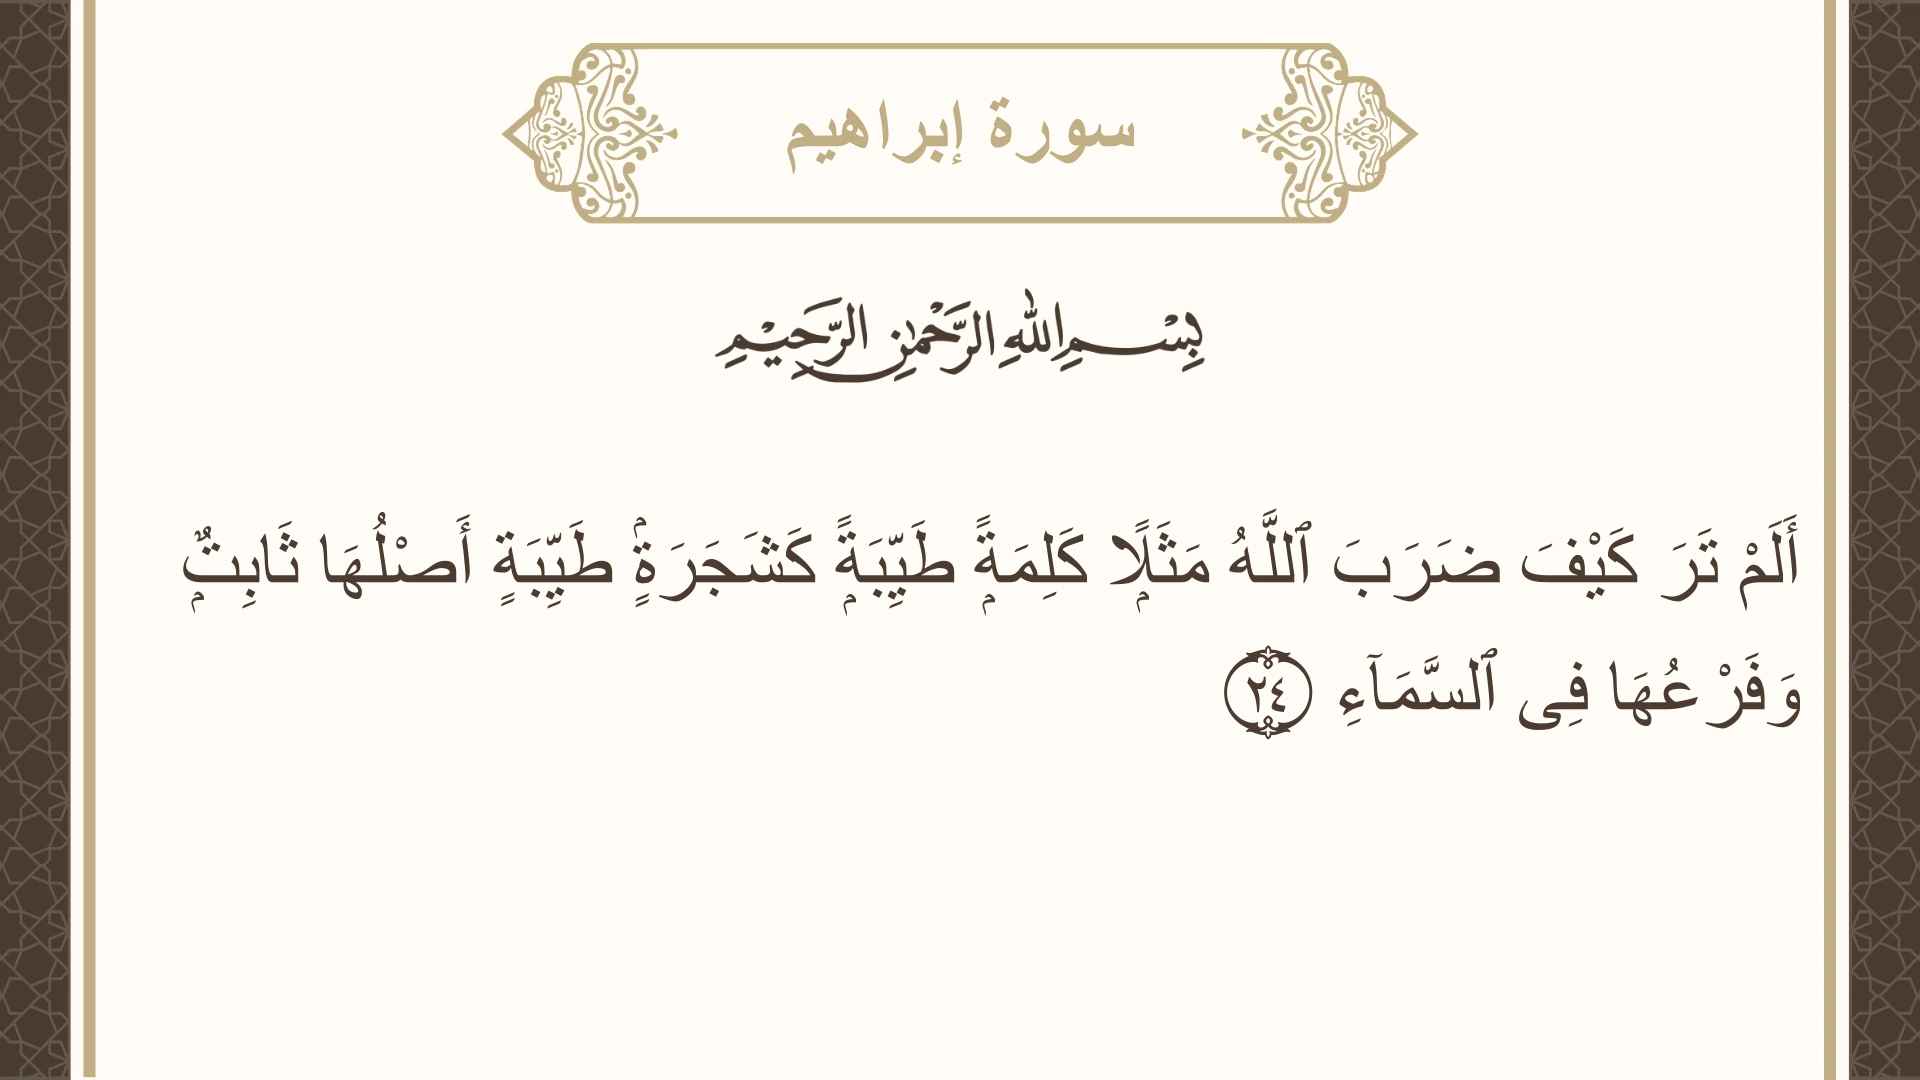 سورة إبراهيم
بِسْمِ اللهِ الرَّحْمٰنِ الرَّحِيْمِ
أَلَمْ تَرَ كَيْفَ ضَرَبَ ٱللَّهُ مَثَلًۭا كَلِمَةًۭ طَيِّبَةًۭ كَشَجَرَةٍۢ طَيِّبَةٍ أَصْلُهَا ثَابِتٌۭ
وَفَرْعُهَا فِى ٱلسَّمَآءِ ٢٤